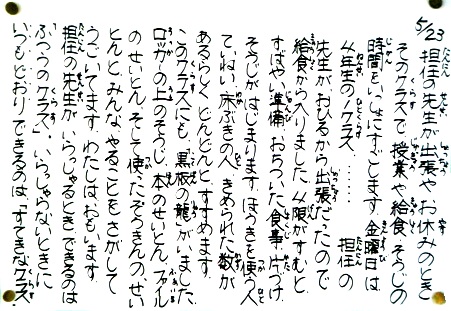 5/23
担任の先生が出張やお休みのとき
そのクラスで授業や給食、そうじの
時間をいっしょにすごします。金曜日は
4年生の1クラス……。担任の
先生がおひるから出張だったので
給食から入りました。4限がすむと
すばやい準備、おちついた食事、片づけ。
そうじがはじまります。ほうきを使う人、
ていねい、床ぶきの人、きめられた数が
あるらしく、どんどんと、すすめます。
このクラスにも、「黒衣の龍」がいました。
ロッカーの上のそうじ、本のせいとん、ファイル
のせいとん、そして使ったぞうきんの、せい
とんと、みんな、やることをさがして
うごいてます。わたしはおもいます。
担任の先生が、いらっしゃるときできるのは
「ふつうのクラス」、いらっしゃらないときに
いつもどおりできるのは「すてきなクラス」